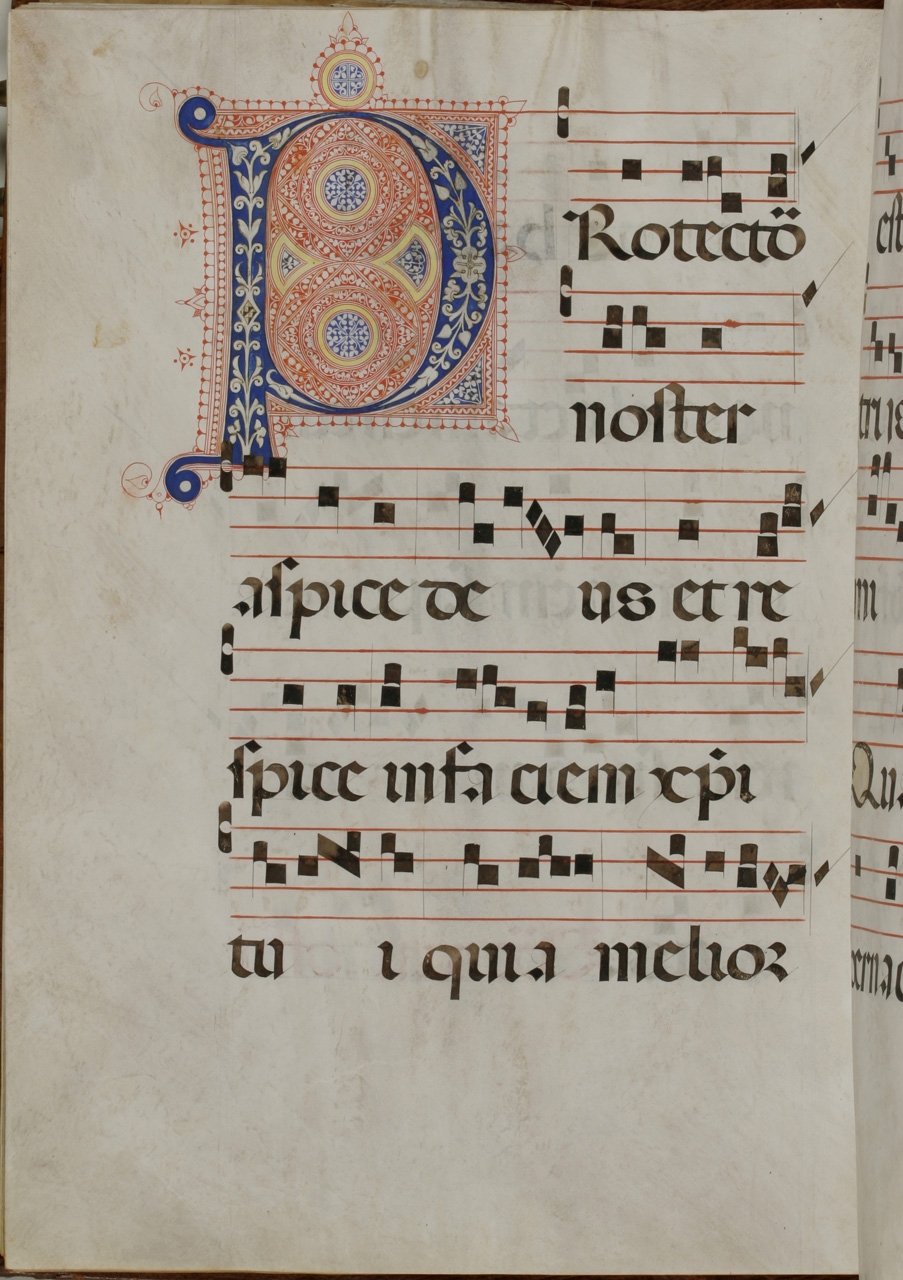 PRotectoͤr
noster
aſpice de us et re
ſpice in fa ciem xp̄i
tu i quia melior